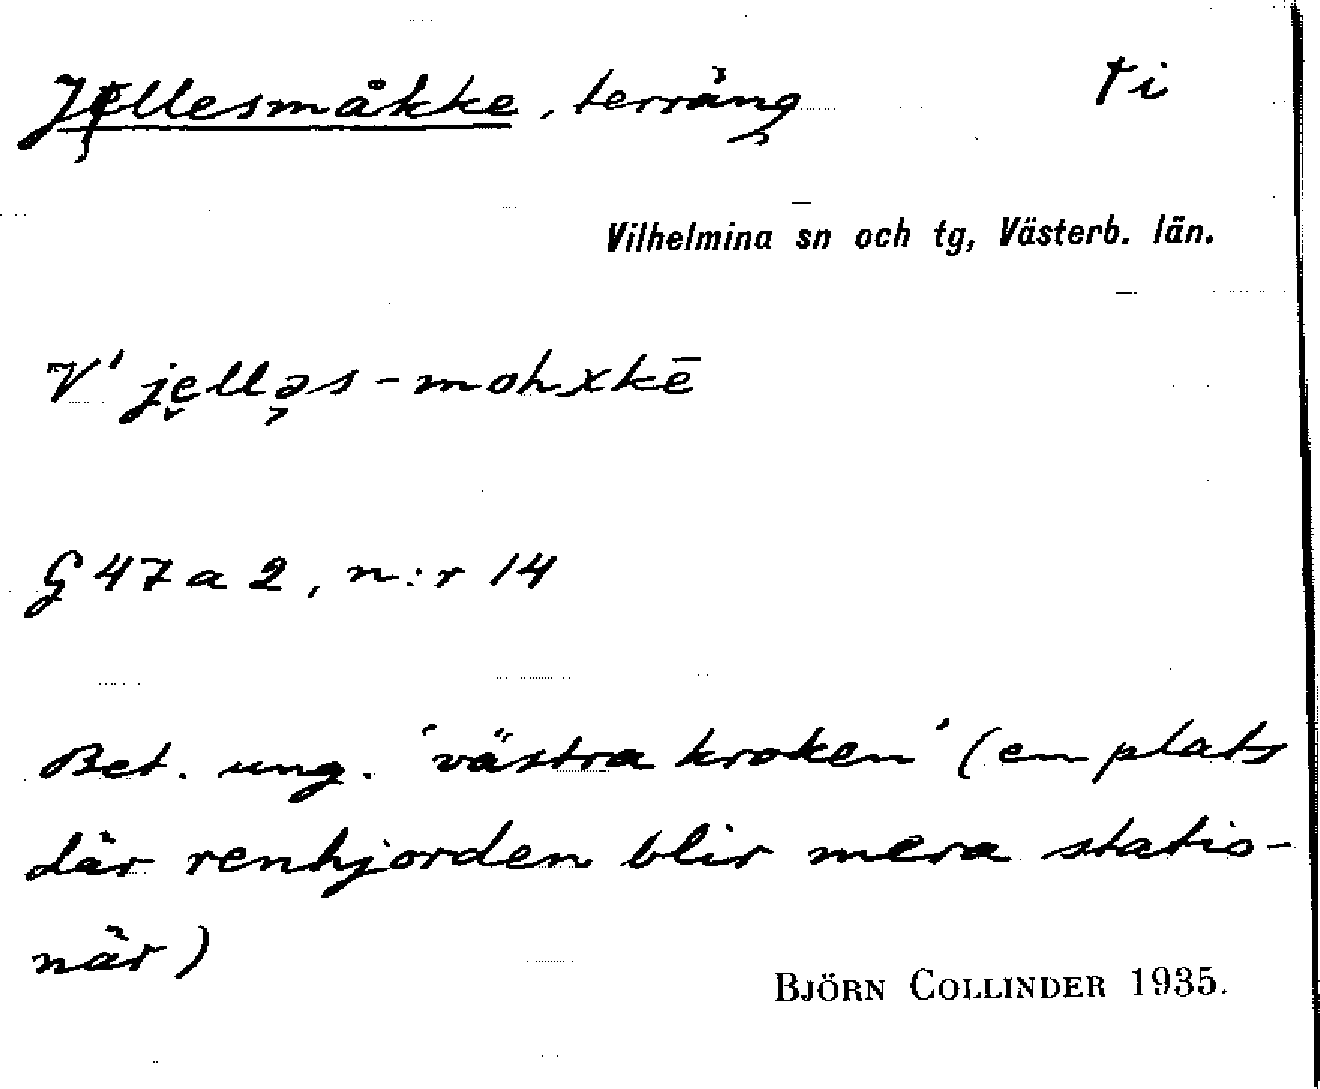 Jellesmåkke, terräng ti
Vilhelmina sn och tg, Västerb. län.
V' je̬lləs-mohxkē
§ 47 a 2, n:r 14
Bet. ung. 'västra kroken' (en plats
där renhjorden blir mera statio-
när)
BJÖRN COLLINDER 1935.